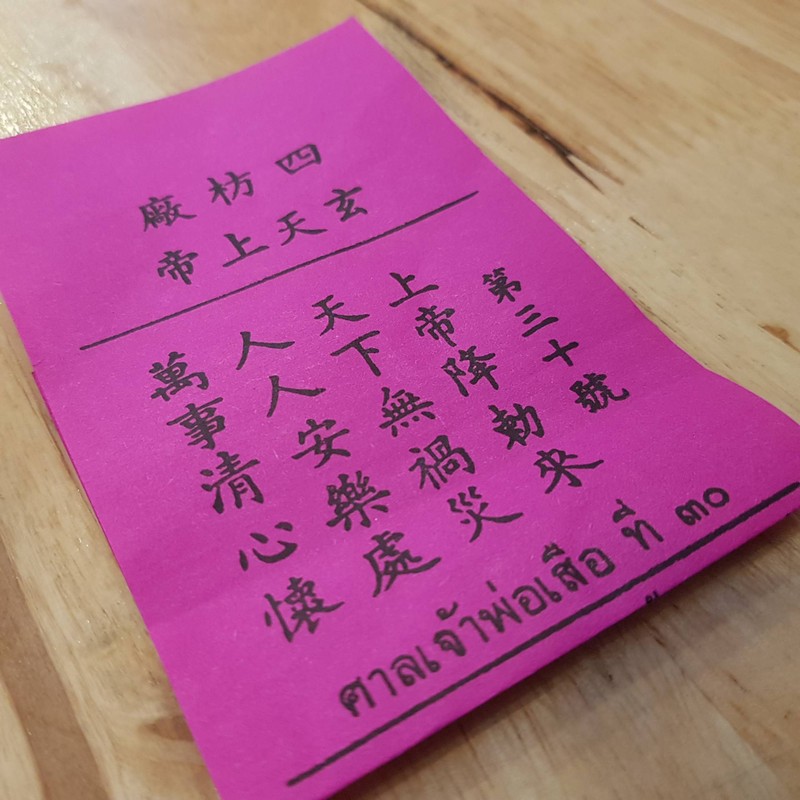 四枋廠
玄天上帝
第三十號
上帝降勅來
天下無禍災
人人安樂處
萬事清心懷
ศาลเจ้าพ่อเสือ ที่ ๓๐